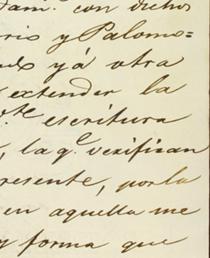 Fam.ª con dichos
rio y Palomo=
yá otra
extender la
te escritura
, la q.e verifican
presente, por la
en aquella me
y forma que